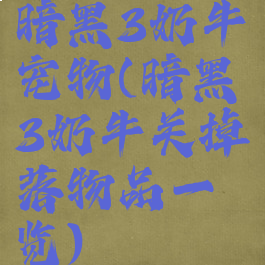 暗黑3奶牛
宠物(暗黑
3奶牛关掉
落物品一
览)